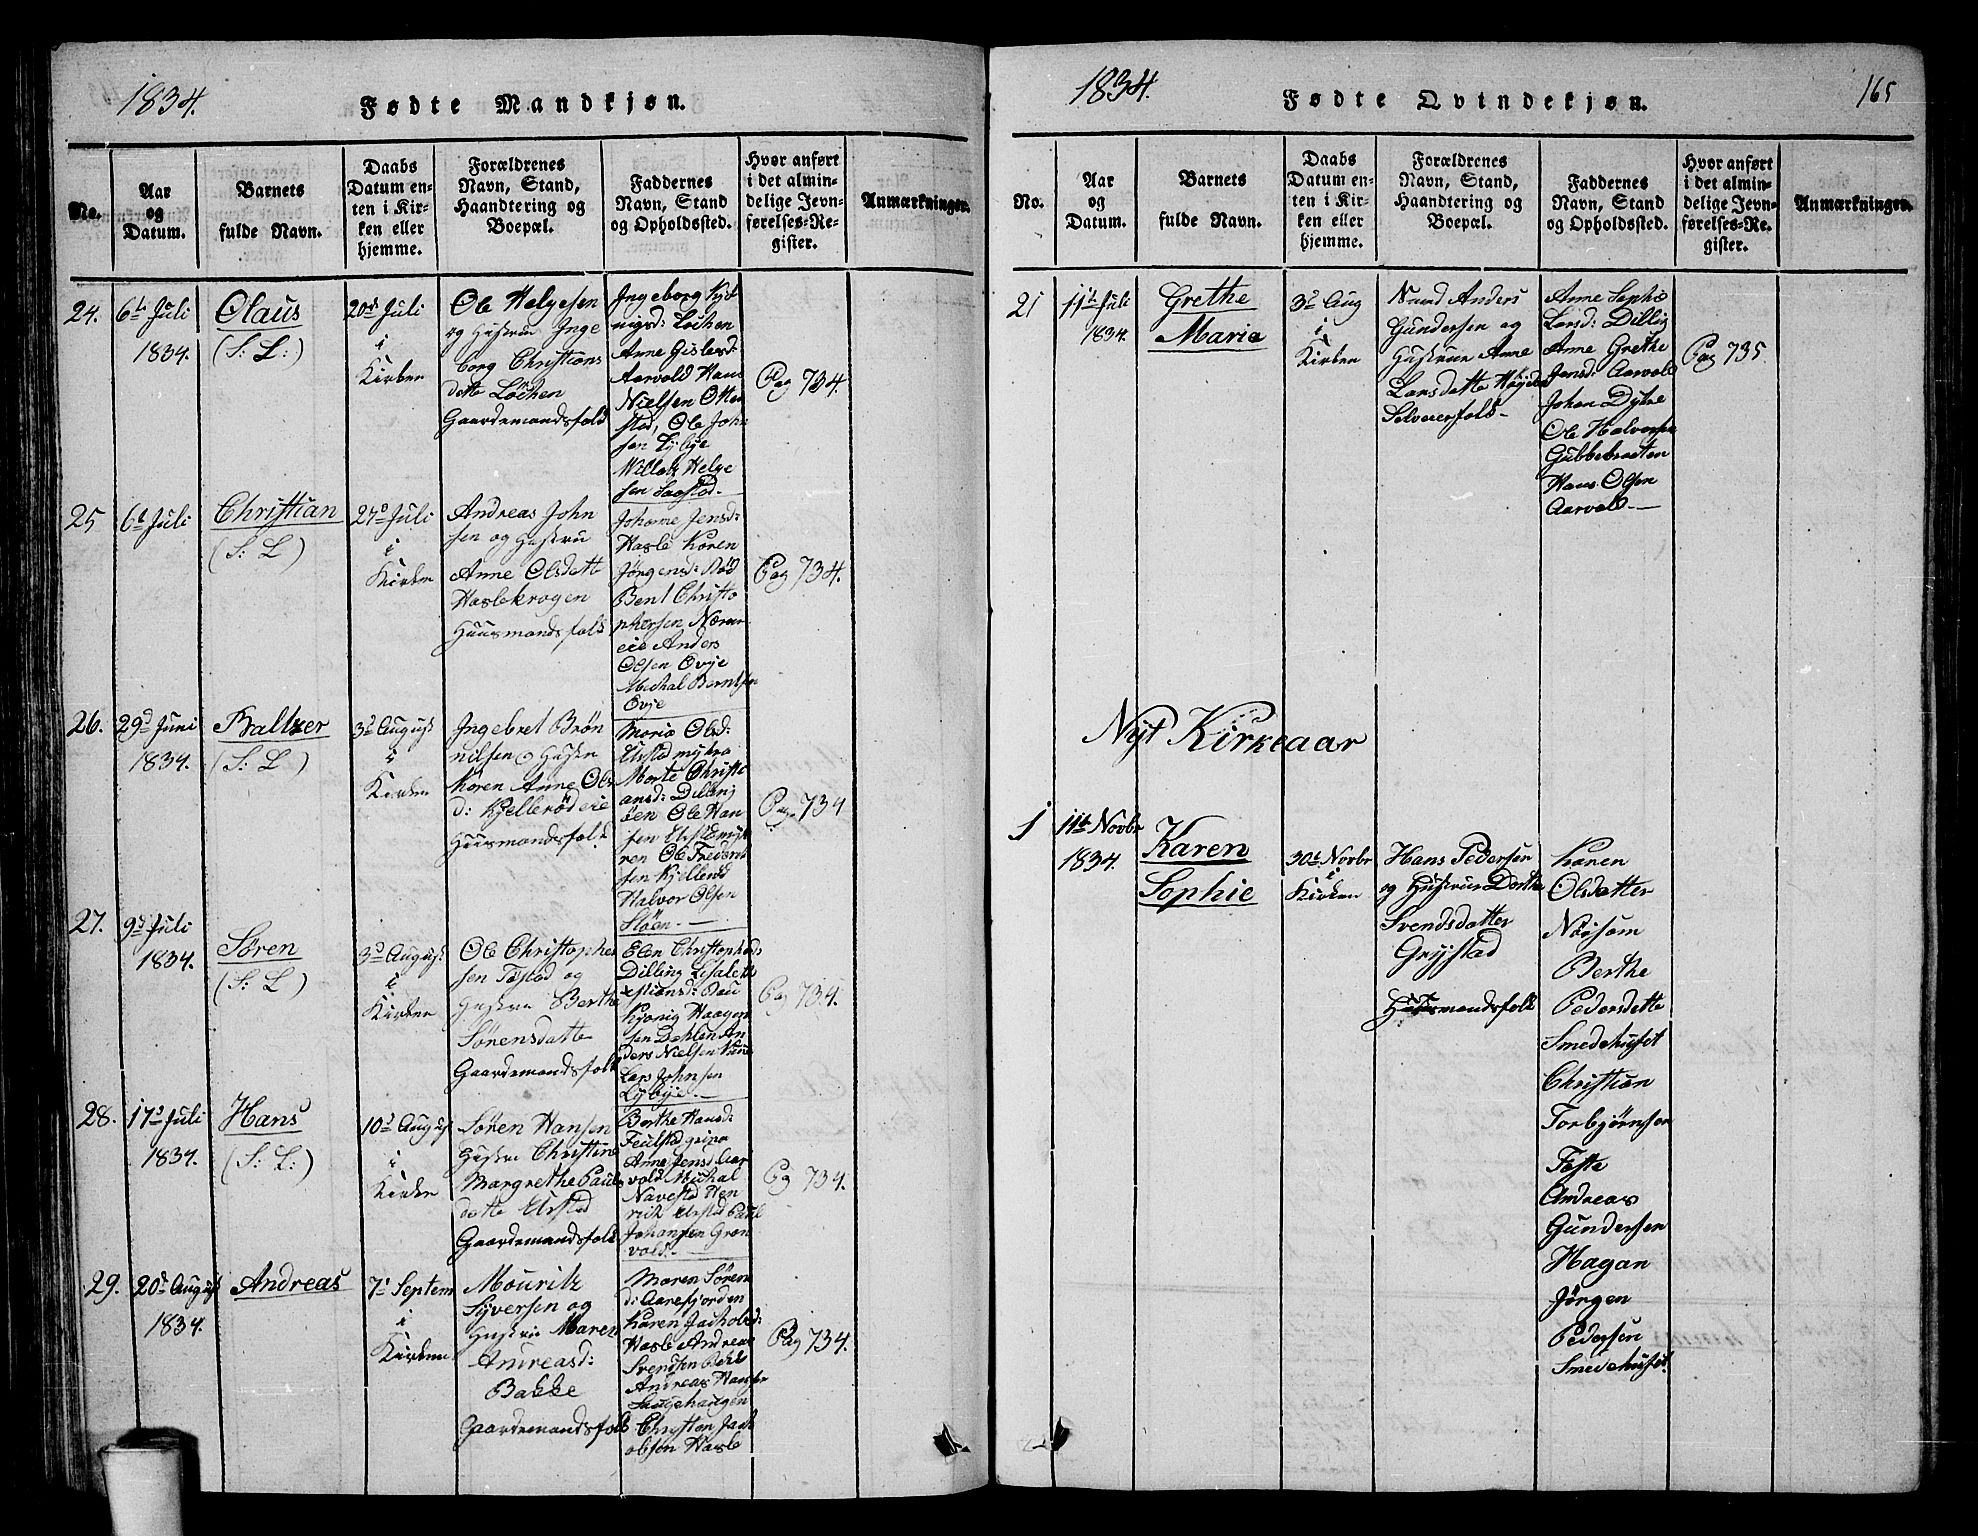 1834.
Fødte Mandkjøn.
No.
Aar
og
Datum.
Barnets
fulde Navn.
Daabs
Datum en-
ten i Kir-
ken eller
hjemme.
Forældrenes
Navn, Stand,
Haandtering og
Boepæl.
Faddernes
Navn, Stand
og Opholdssted.
Hvor anført
i det almin-
delige Jevn-
førelses-Re-
gister.
Anmærkninger.
24.
6t Juli
1834.
Olaus
(S: L:)
20de Juli
i
Kirken
Ole Helgesen
og Hustrue Inge
borg Christians
datte Löchen
Gaardemandsfold
Ingeborg
Löchen
Anne Gislesd:
Aarvold Hans
Nielsen Otter
stad, Ole John
sen Lybye
Willatz Helge
sen Saastad.
Pag 734.
25
6t Juli
Christian
(S: L)
27de Juli
i
Kirken
Andreas John
sen og Hustru
Anne Olsdatte
Haslekrogen
Huusmandsfolk
Johanne Jensd:
Hasle Karen
Jörgensd: Röd
Bent Christo
phersen
eie Anders
Olsen Evje
Michal Berntsen
Evje
Pag 734.
26.
29d Juni
1834.
Baltzer
(S: L)
3d August
i
Kirken
Ingebret Brön
nilsen og Hustru
Maren Anne Ols
d: Kjelleröd eie
Huusmandsfolk
Maria Olsd:
Elstadmyhra
Marte Christi
ansd: Dilling
öen Ole Han
sen Elstadmyh
ren Ole Frederik
sen Kjelleröd
Halvor Olsen
Slöen.
Pag. 734
27.
9d Juli
1834.
Søren
(S: L)
3d August
i
Kirken
Ole Christophe
sen Tøstad og
Hustrue Berthe
Sörensdatte
Gaardemandsfolk
Elen Christophersd
Dilling Lisabeth
Kjönig Haagen
sen Dahlen An
ders Nielsen
Lars Johnsen
Lybye.
Pag 734.
28.
17d Juli
1834.
Hans
(S: L:)
10d August
i
Kirken
Søren Hansen
Hustrue Christine
Margrethe Pauls
datte Elstad
Gaardemandsfolk
Berthe Hansd:
Anne Jensd Aar
vold Michal
Navestad Hen
rik Elstad Paul
Johansen Grøn
vold.
Pag 734.
29.
20d August
1834.
Andreas
7d Septem
i
Kirken
Mouritz
Syversen og
Hustrue Maren
Andreasd:
Bakke
Gaardemandsfolk
Maren Sören
d: Aarefjorden
Karen Jachobsd:
Hasle Andreas
Svendsen Bakke
Andreas Hansen
Saugehaugen
Christen Jach
obsen Hasle
Pag 734.
1834.
Fødte Qvindekjøn.
165
No.
Aar
og
Datum.
Barnets
fulde Navn.
Daabs
Datum en-
ten i Kir-
ken eller
hjemme.
Forældrenes
Navn, Stand,
Haandtering og
Boepæl.
Faddernes
Navn, Stand
og Opholdssted.
Hvor anført
i det almin-
delige Jevn-
førelses-Re-
gister.
Anmærkninger.
21
11t Juli
1834.
Grethe
Maria
3d Aug
i
Kirken
Anders
Gundersen og
Hustrue Anne
Larsdatte Høyden
Selveierfolk
Anne Sophie
Larsd: Dilling
Anne Grethe
Jensd: Aarvold
Johan Dyhre
Ole Halvorsen
Gubbebraaten
Hans Olsen
Aarvold.
Pag 735
Nyt Kirkeaar
1
11te Novbr
1834.
Karen
Sophie
30t Novbr
i
Kirken
Hans Pedersen
og Hustrue Dorthe
Svendsdatter
Gryjstad
Huusmandsfolk
Karen
Olsdatter
Nörsom
Berthe
Pedersdatte
Smedehuset
Christian
Torbjørnsen
Tøste
Andreas
Gundersen
Hagan
Jörgen
Pedersen
Smedehuset.